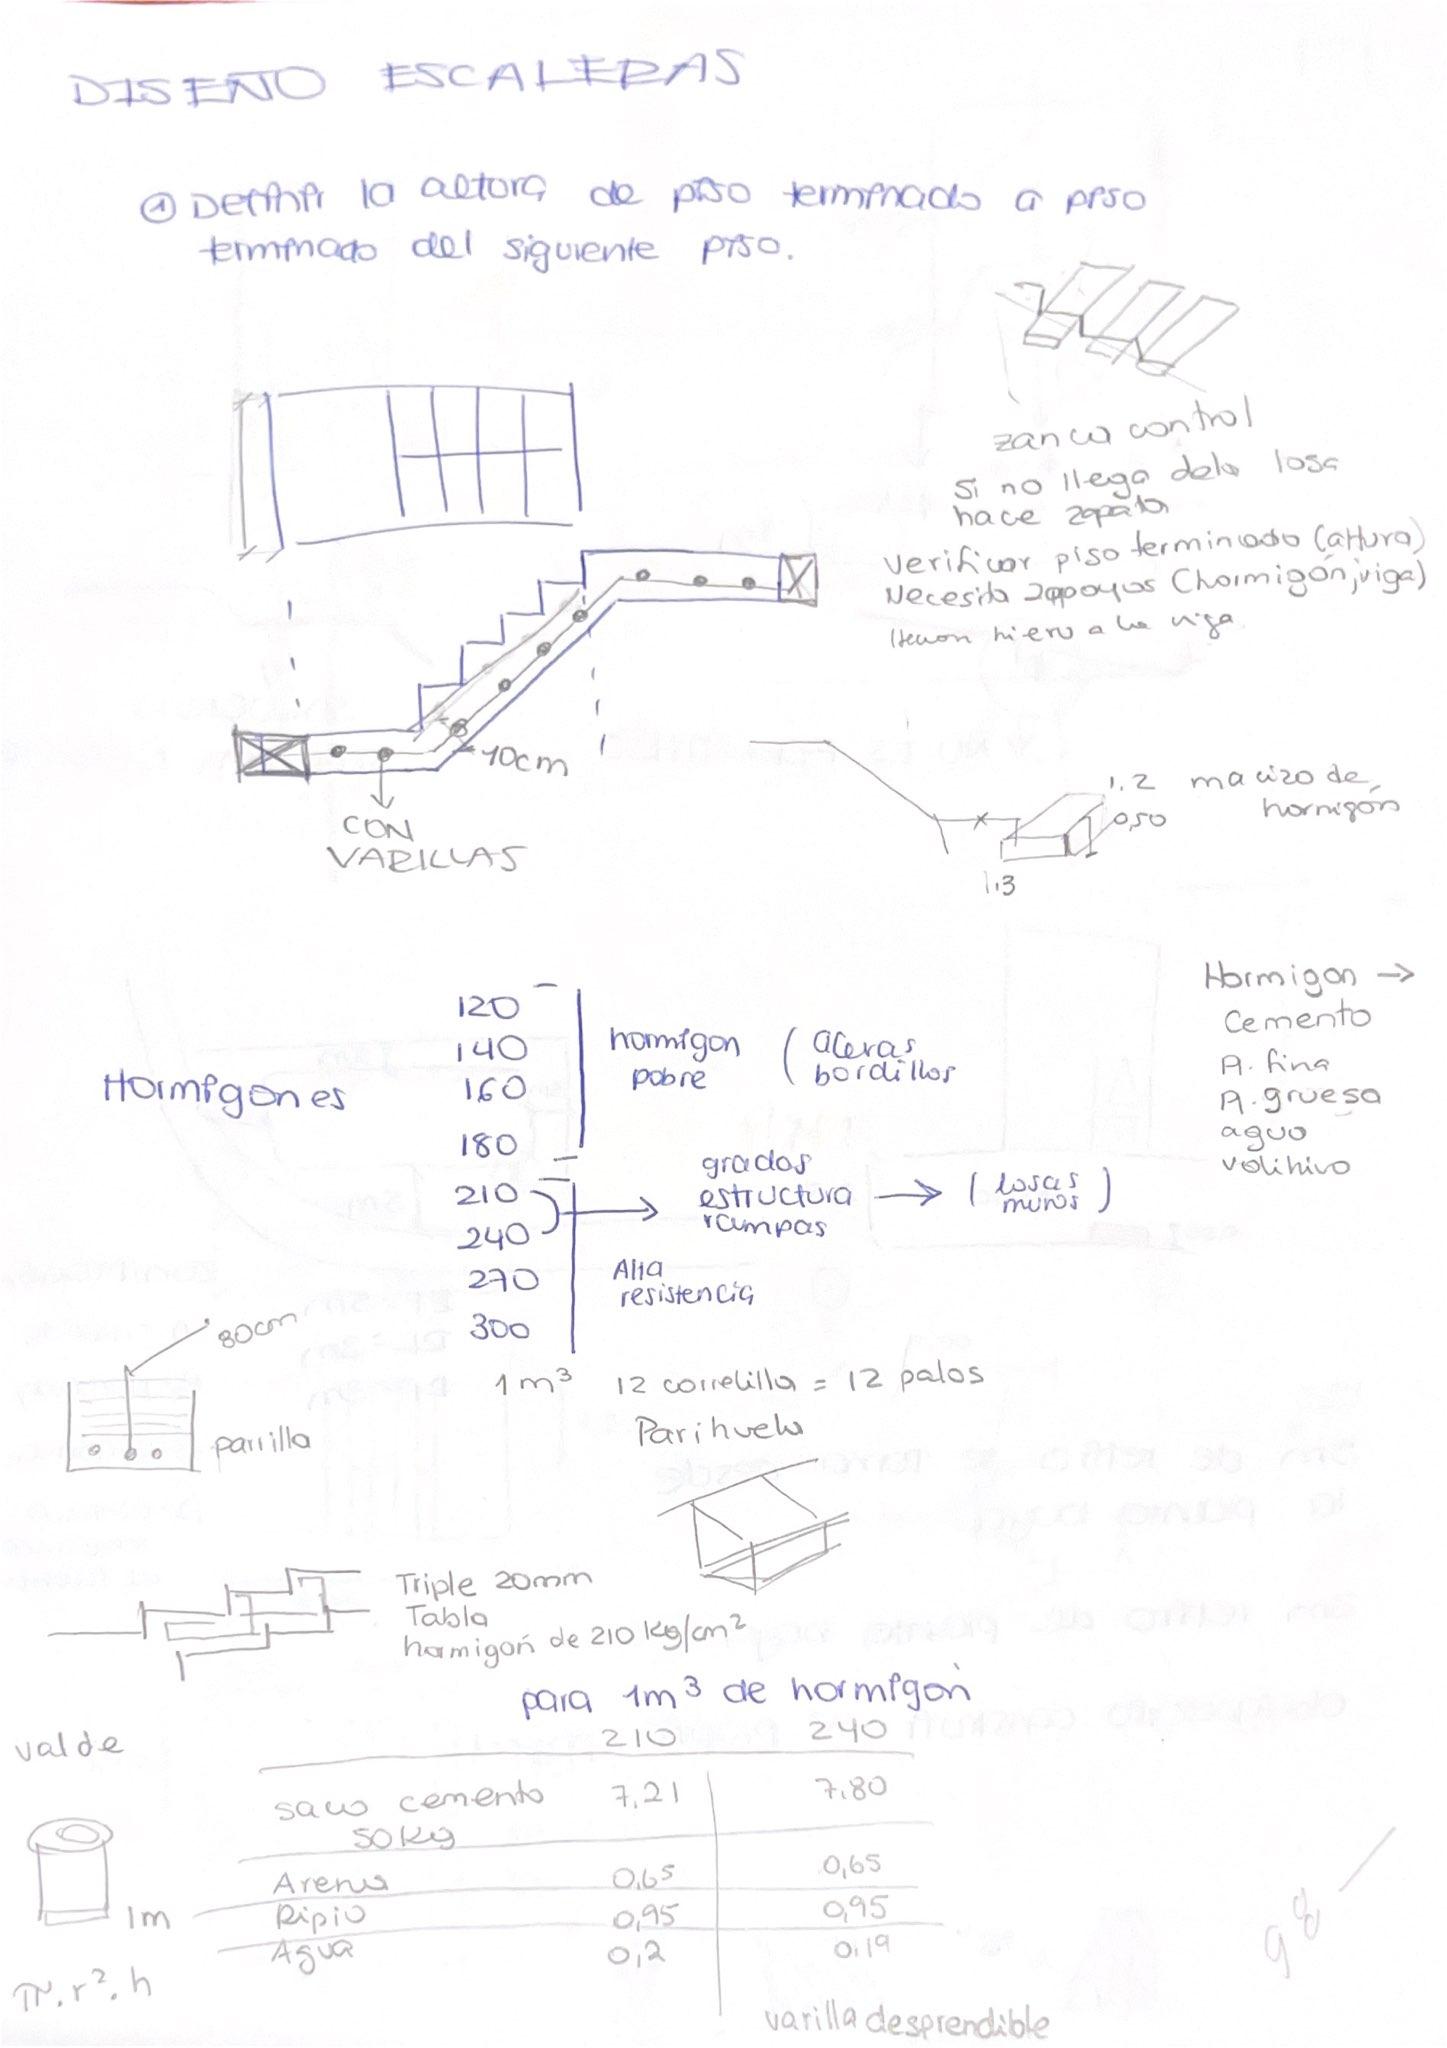 DISEÑO ESCALERAS
① Definir la altura de piso terminado a piso
terminado del siguiente piso.
zanca control
Si no llega dela losa
hace zapata
verificar piso terminado (altura)
Necesita 2 apoyos (hormigón, viga)
hierro a la viga
10cm
CON
VARILLAS
1,2 macizo de
0,50 hormigón
1,3
Hormigones
120
140
160
180
210
240
270
300
hormigon
pobre
( aceras
bordillos
grados
estructura
rampas
( losas
muros )
Alta
resistencia
Hormigon →
Cemento
A. fina
A. gruesa
agua
80cm
parrilla
1 m³ 12 carretilla = 12 palos
Parihuela
Triple 20mm
Tabla
hormigón de 210 kg/cm²
para 1m³ de hormigón
210 240
valde
saco cemento 7,21 7.80
50kg
Arena 0,65 0,65
Ripio 0,95 0,95
Agua 0,2 0.19
1m
π.r².h
varilla desprendible
98